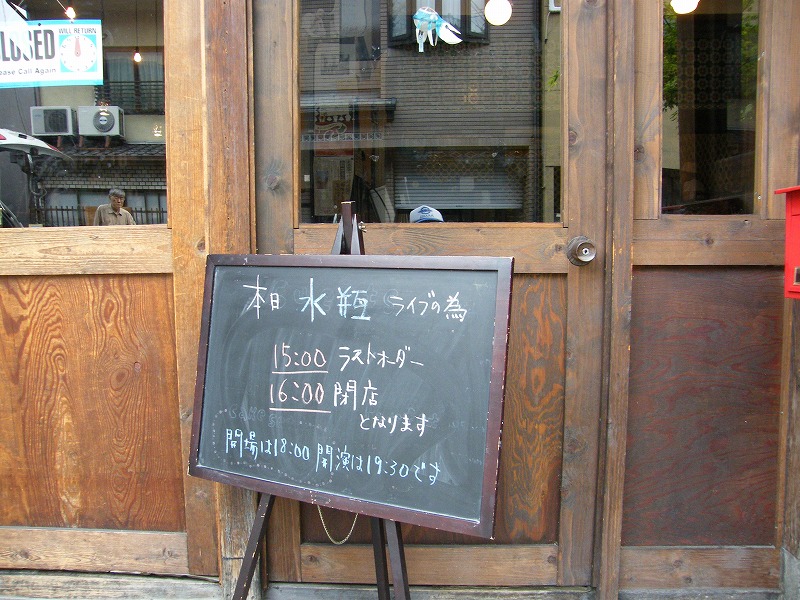 WILL RETURN
LOSED
ease Call Again
本日 水瓶 ライブの為
15:00 ラストオーダー
16:00 閉店
となります
開場は18:00 開演は19:30です